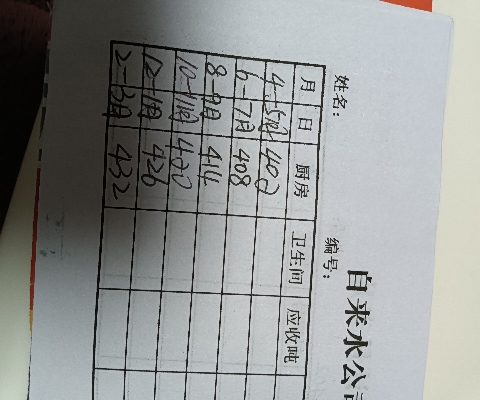 自来水公
姓名： 编号：
月 日 厨房 卫生间 应收吨
4-5月 402
6-7月 408
8-9月 414
10-11月 420
12-1月 426
2-3月 432